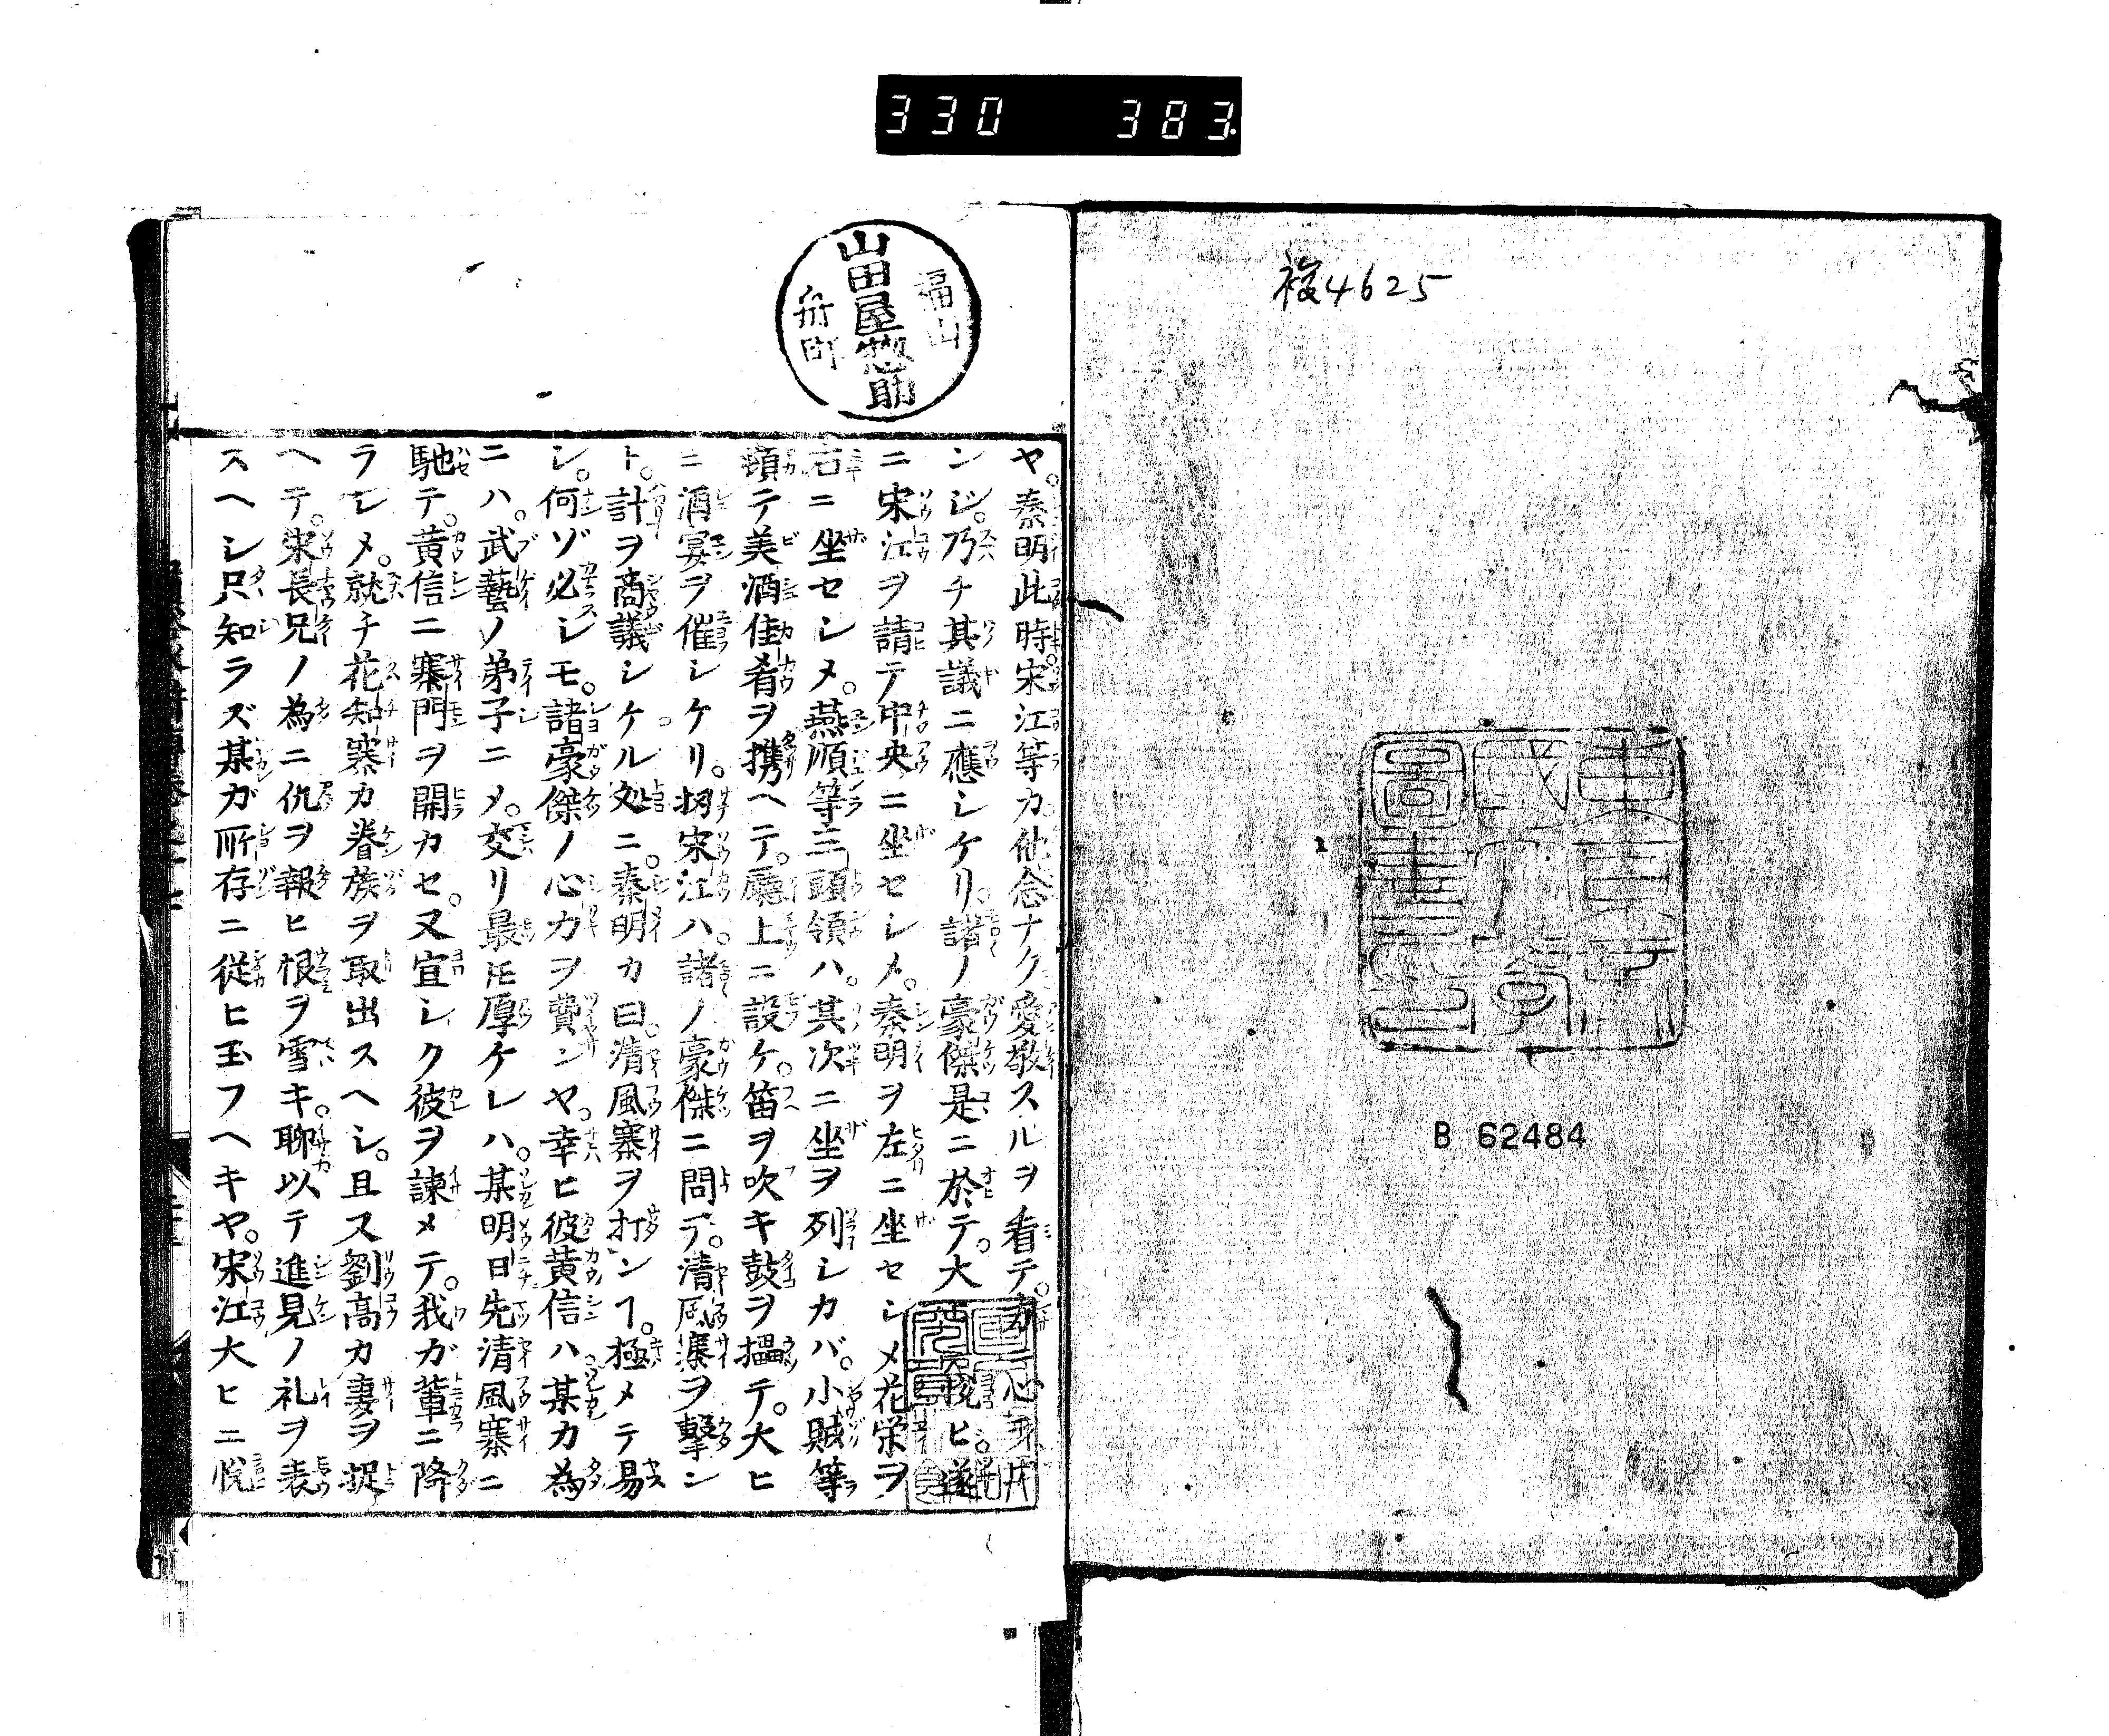 330 383
複4625
B 62484
福山
山田屋惣助
舟町
ヤ。秦明此時。宋江等カ他念ナク愛敬スルヲ看テ。
ンジ。乃チ其議ニ應シケリ。諸ノ豪傑是ニ於テ。大悦ヒ。遂
ニ宋江ヲ請テ中央ニ坐セシメ。秦明ヲ左ニ坐セシメ花栄ヲ
右ニ坐セシメ。燕順等三頭領ハ。其次ニ坐ヲ列シカバ。小賊等
頓テ美酒佳肴ヲ携ヘテ。廳上ニ設ケ。笛ヲ吹キ鼓ヲ搵テ。大ヒ
ニ酒宴ヲ催シケリ。扨宋江ハ。諸ノ豪傑ニ問テ。清風寨ヲ撃ン
ト。計ヲ商議シケル処ニ。秦明カ曰。清風寨ヲ打ンヿ。極メテ易
シ。何ゾ必シモ。諸豪傑ノ心カヲ費ンヤ。幸ヒ彼黄信ハ。某カ為
ニハ。武藝ノ弟子ニメ。交リ最厇厚ケレハ。某明日先清風寨ニ
馳テ。黄信ニ寨門ヲ開カセ。又宜シク彼ヲ諫メテ。我ガ輩ニ降
ラシメ。就チ花知寨カ眷族ヲ取出スヘシ。且ス劉高カ妻ヲ捉
ヘテ。宋長兄ノ為ニ仇ヲ報ヒ恨ヲ雪キ。聊以テ進見ノ礼ヲ表
スヘシ只知ラズ某ガ所存ニ從ヒ玉フヘキヤ。宋江大ヒニ悦